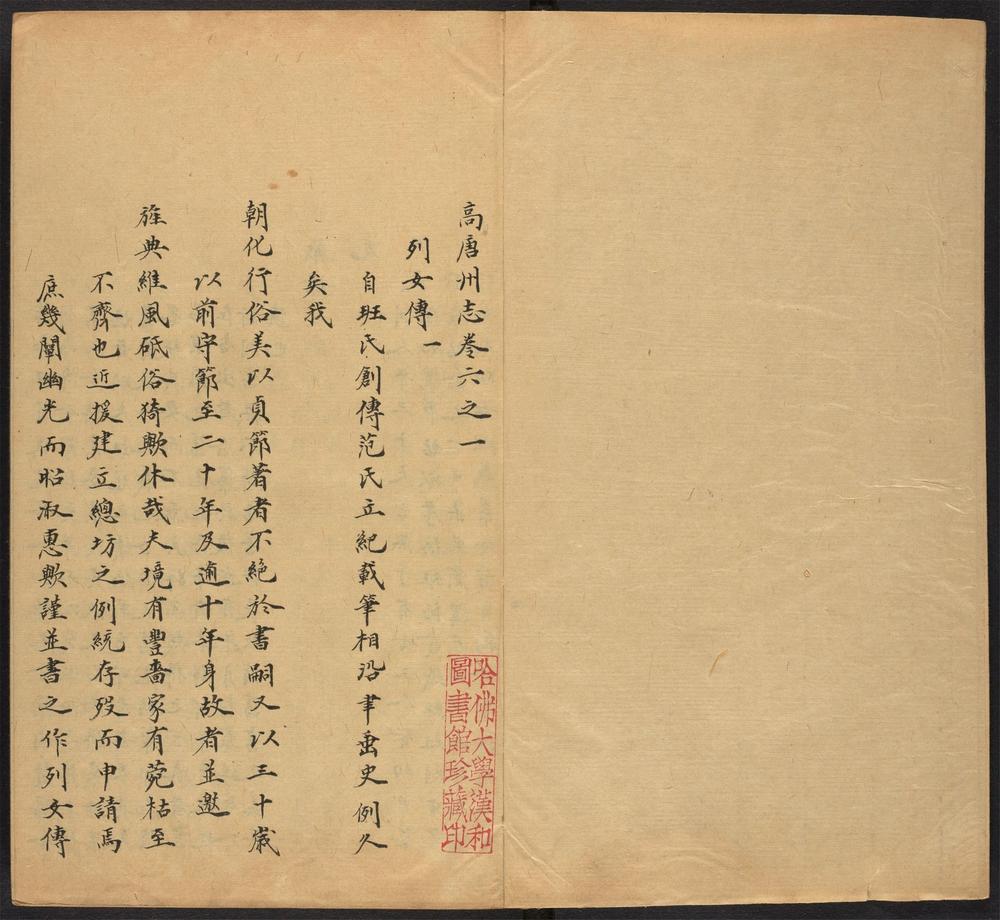 高唐州志卷六之一
列女傳一
自班氏創傳范氏立紀載筆相沿聿垂史例久
矣我
朝化行俗美以貞節著者不絕於書嗣又以三十歲
以前守節至二十年及逾十年身故者並邀
旌典維風砥俗猗歟休哉夫境有豐嗇家有菀枯至
不齊也近援建立總坊之例統存歿而申請焉
庶幾闡幽光而昭淑惠歟謹並書之作列女傳
哈佛大學漢和
圖書館珍藏印